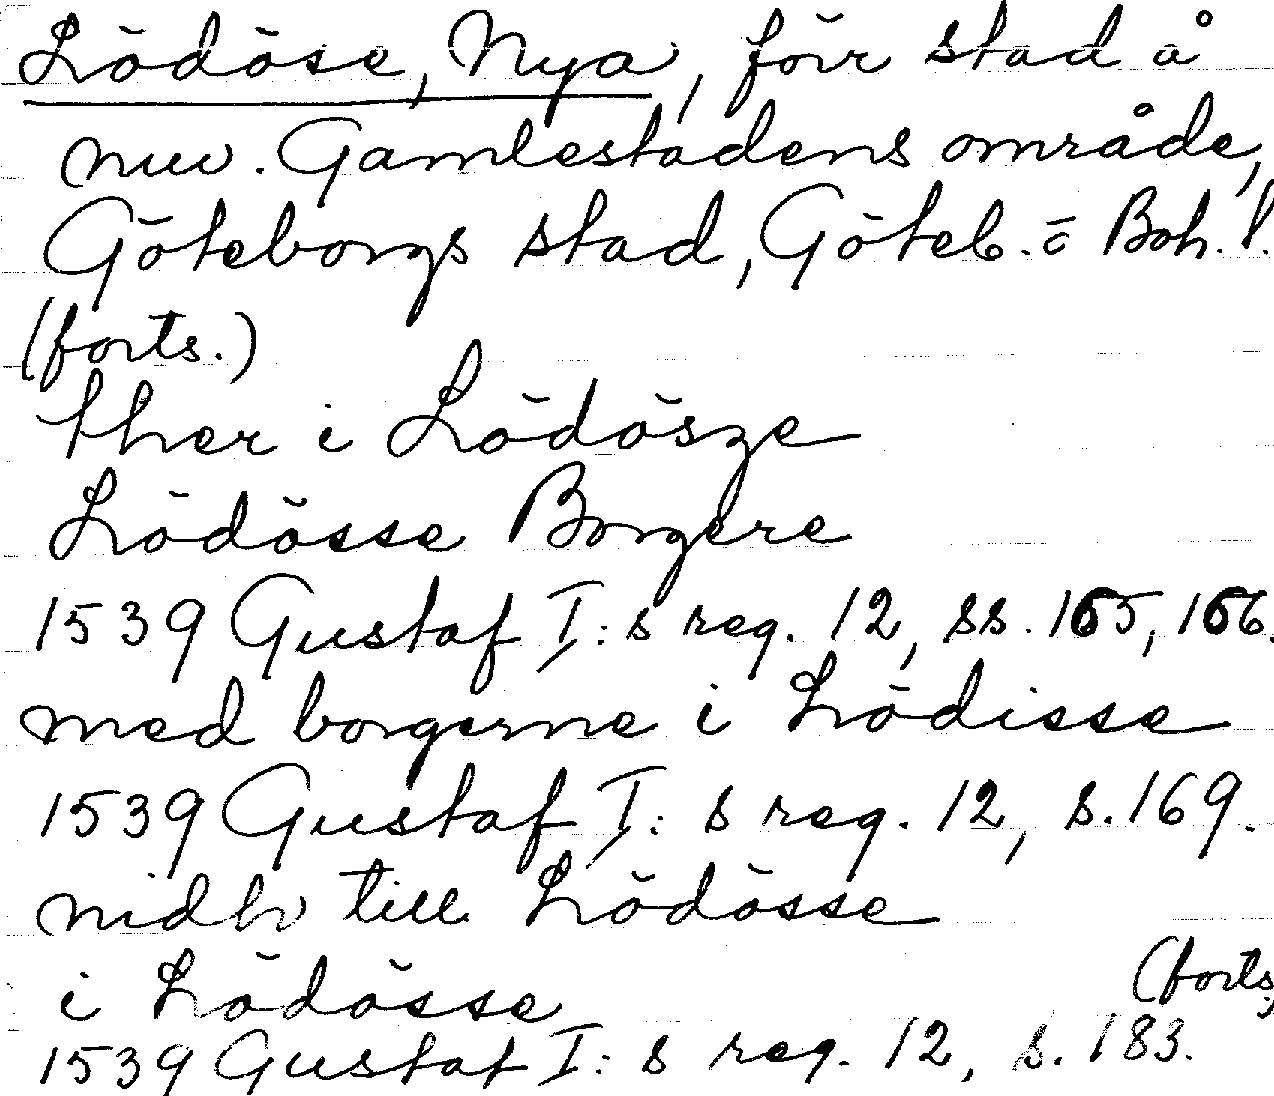 Lödöse, Nya, förr stad å
nuv. Gamlestadens område,
Göteborgs stad, Göteb. o Boh. l.
(forts.)
ther i Lödösze
Lödösse Borgere
1539 Gustaf I:s reg. 12, ss. 165, 166.
med borgerne i Lödisse
1539 Gustaf I:s reg. 12, s. 169.
nidh till Lödösse
i Lödösse
(forts.)
1539 Gustaf I:s reg. 12, s. 183.